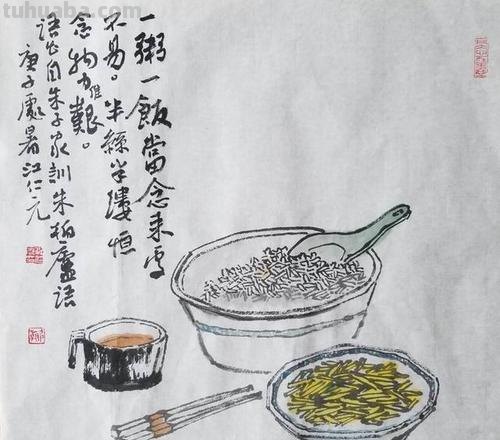 tuhuaba.com
一粥一飯當念来處
不易。半絲半縷恒
念物力維艱。
語出自朱子家訓朱柏廬語
庚子處暑江仁元